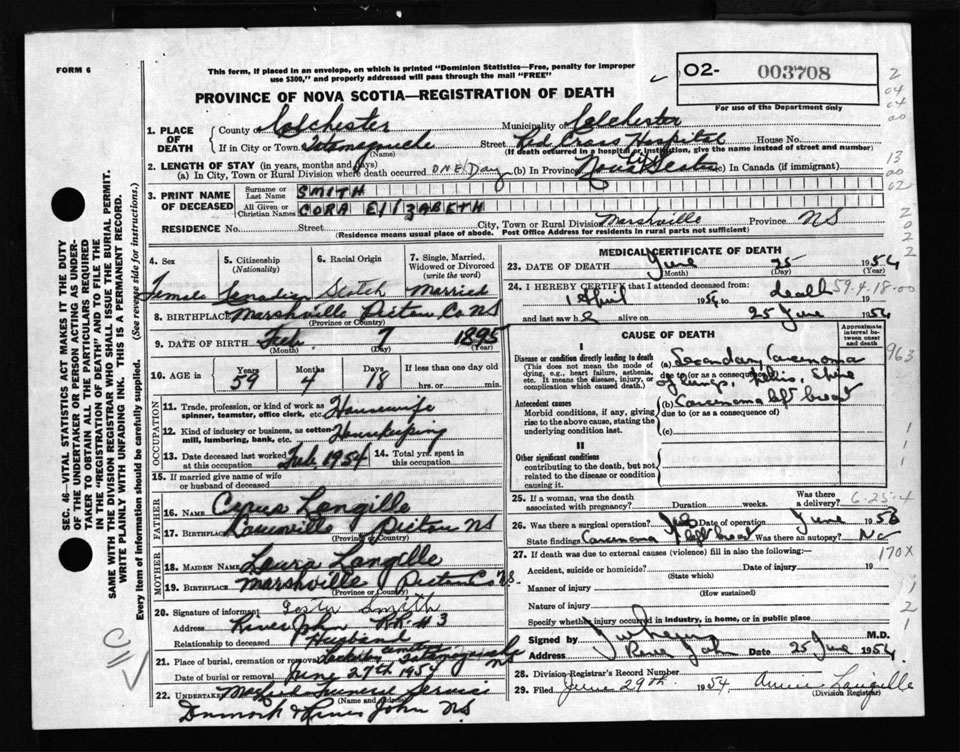 FORM 6
This form, if placed in an envelope, on which is printed "Dominion Statistics—Free, penalty for improper
use $300," and properly addressed will pass through the mail "FREE"
O2- 003708
For use of the Department only
PROVINCE OF NOVA SCOTIA—REGISTRATION OF DEATH
1. PLACE OF DEATH { County of Colchester Municipality of Colchester
If in City or Town Tatamagouche (Name) Street Red Cross Hospital House No.
(If death occurred in a hospital or institution, give the name instead of street and number)
2. LENGTH OF STAY (in years, months and days)
(a) In City, Town or Rural Division where death occurred ONE Day (b) In Province Nova Scotia (c) In Canada (if immigrant)
3. PRINT NAME OF DECEASED { Surname or Last Name SMITH
All Given or Christian Names CORA ElIZABETH
RESIDENCE No. Street City, Town or Rural Division Marshville Province NS
(Residence means usual place of abode. Post Office Address for residents in rural parts not sufficient)
4. Sex 5. Citizenship (Nationality) 6. Racial Origin 7. Single, Married, Widowed or Divorced (write the word)
Female Canadian Scotch Married
8. BIRTHPLACE Marshville Pictou Co NS
(Province or Country)
9. DATE OF BIRTH Feb 7 1895
(Month) (Day) (Year)
10. AGE in Years 59 Months 4 Days 18 If less than one day old
hrs. or min.
OCCUPATION
11. Trade, profession, or kind of work as spinner, teamster, office clerk, etc. Housewife
12. Kind of industry or business, as cotton mill, lumbering, bank, etc. Housekeeping
13. Date deceased last worked at this occupation Feb. 1954 14. Total yrs. spent in this occupation
15. If married give name of wife or husband of deceased
FATHER
16. Name Cyrus Langille
17. Birthplace Pictou NS
(Province or Country)
MOTHER
18. MAIDEN NAME Laura Langille
19. BIRTHPLACE Marshville Pictou Co NS.
(Province or Country)
20. Signature of informant Smith
Address River John RR #3
Relationship to deceased Husband
21. Place of burial, cremation or removal cemetery Tatamagouche NS
Date of burial or removal June 27th 1954
22. Undertaker Funeral Service
(Name and Address)
River John NS
MEDICAL CERTIFICATE OF DEATH
23. DATE OF DEATH June 25 1954
(Month) (Day) (Year)
24. I HEREBY CERTIFY that I attended deceased from
1 April 1954 to death 59.4.18.00
and last saw h alive on 25 June 1954
CAUSE OF DEATH
Approximate interval between onset and death
I
Disease or condition directly leading to death
(This does not mean the mode of dying, e.g., heart failure, asthenia, etc. It means the disease, injury, or complication which caused death.)
(a) Secondary Carcinoma
due to (or as a consequence of)
of lungs, Pelvis, Spine
Antecedent causes
Morbid conditions, if any, giving rise to the above cause, stating the underlying condition last.
(b) Carcinoma left breast
due to (or as a consequence of)
(c)
II
Other significant conditions
contributing to the death, but not related to the disease or condition causing it.
25. If a woman, was the death associated with pregnancy? Duration weeks. Was there a delivery? 6-25-4
26. Was there a surgical operation? Yes Date of operation June 1953
State findings Carcinoma left breast Was there an autopsy? No
27. If death was due to external causes (violence) fill in also the following:— 170X
Accident, suicide or homicide? Date of injury 19
(State which)
Manner of injury
(How sustained)
Nature of injury
Specify whether injury occurred in industry, in home, or in public place
Signed by M.D.
Address River John Date 25 June 1954
28. Division Registrar's Record Number
29. Filed June 29th. 1954 Annie Langille
(Division Registrar)
SEC. 46—VITAL STATISTICS ACT MAKES IT THE DUTY
OF THE UNDERTAKER OR PERSON ACTING AS UNDER-
TAKER TO OBTAIN ALL THE PARTICULARS REQUIRED
IN THE "REGISTRATION OF DEATH" AND TO FILE THE
SAME WITH THE DIVISION REGISTRAR WHO SHALL ISSUE THE BURIAL PERMIT.
WRITE PLAINLY WITH UNFADING INK. THIS IS A PERMANENT RECORD.
Every item of information should be carefully supplied. (See reverse side for instructions.)
2
04
04
00
13
00
02
2
0
2
2
963
1
1
1
1
2
1